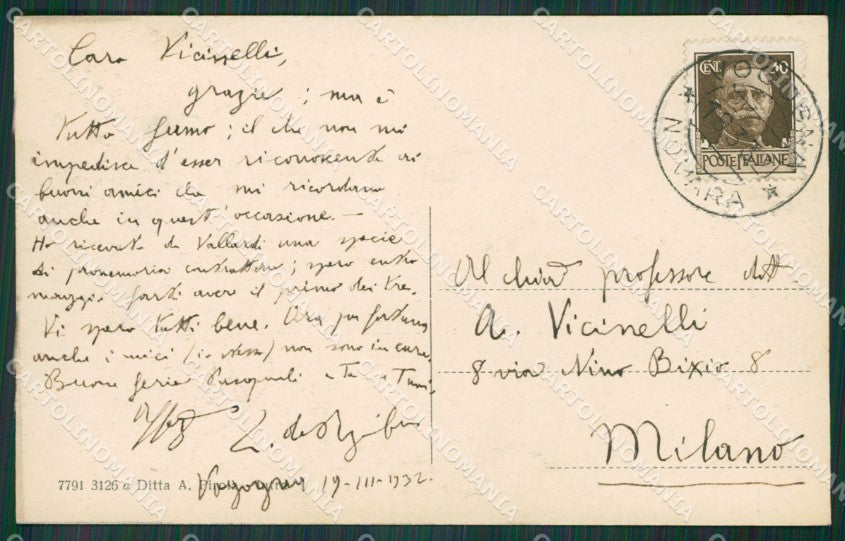 Caro Vicinelli,
grazie; ma è
tutto fumo; il che non mi
impedisce d'esser riconoscente ai
buoni amici che mi ricordano
anche in quest'occasione. —
Ho ricevuto da Vallardi una specie
di promemoria contratto; spero entro
maggio farti avere il primo dei tre.
Vi spero tutti bene. Ora per fortuna
anche i miei (io stesso) non sono in cura.
Buone ferie Pasquali a Te e Tuoi,
19-III-1932.
7791 3126 a Ditta A.
CENT. 30
POSTE ITALIANE
NOVARA
Al chiar professore dott
A. Vicinelli
8 via Nino Bixio 8
Milano
CARTOLINOMANIA